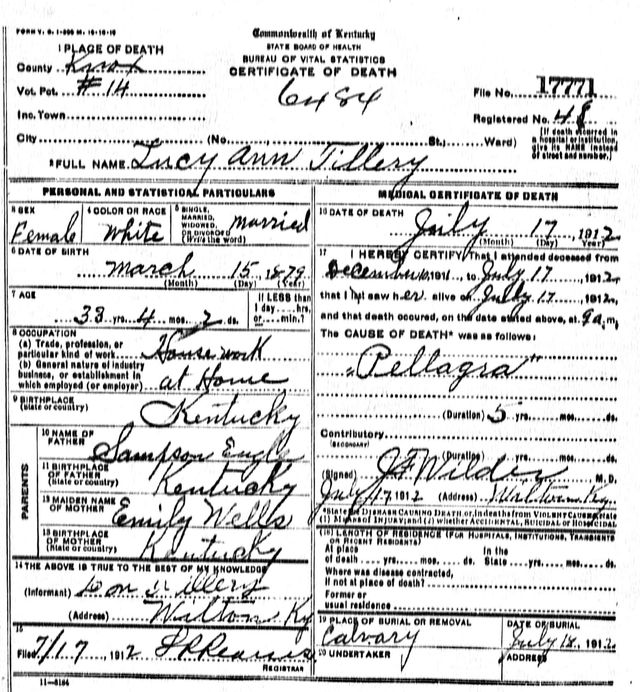 FORM V. S. 1-
Commonwealth of Kentucky
STATE BOARD OF HEALTH
BUREAU OF VITAL STATISTICS
CERTIFICATE OF DEATH
1 PLACE OF DEATH
County Knox
Vot. Pct. #14
Inc. Town
6484
File No. 17771
Registered No. 48
City (No. St.; Ward)
[If death occurred in a hospital or institution, give its NAME instead of street and number.]
2 FULL NAME Lucy Ann Tillery
PERSONAL AND STATISTICAL PARTICULARS
3 SEX
Female
4 COLOR OR RACE
White
5 SINGLE, MARRIED, WIDOWED, OR DIVORCED (Write the word)
married
6 DATE OF BIRTH
march 15 1879
(Month) (Day) (Year)
7 AGE
33 yrs. 4 mos. 2 ds.
If LESS than 1 day....hrs. or....min.?
8 OCCUPATION
(a) Trade, profession, or particular kind of work House work
(b) General nature of industry business, or establishment in which employed (or employer) at Home
9 BIRTHPLACE
(State or country) Kentucky
PARENTS
10 NAME OF FATHER Sampson Engle
11 BIRTHPLACE OF FATHER (State or country) Kentucky
12 MAIDEN NAME OF MOTHER Emily Wells
13 BIRTHPLACE OF MOTHER (State or country) Kentucky
14 THE ABOVE IS TRUE TO THE BEST OF MY KNOWLEDGE
(Informant) Tillery
(Address) Wilton Ky
15
Filed 7/17 1912
REGISTRAR
11-3184
MEDICAL CERTIFICATE OF DEATH
16 DATE OF DEATH July 17 1912
(Month) (Day) (Year)
17 I HEREBY CERTIFY, That I attended deceased from
December 10, 1911, to July 17 1912,
that I last saw her alive on July 17, 1912,
and that death occured, on the date stated above, at 9 a m,
The CAUSE OF DEATH* was as follows:
"Pellagra"
(Duration) 5 yrs. mos. ds.
Contributory
(SECONDARY)
(Duration) yrs. mos. ds.
(Signed) J F Wilder M. D.
July 17 1912 (Address) Wilton Ky.
*State the DISEASE CAUSING DEATH or, in deaths from VIOLENT CAUSES, state (1) MEANS OF INJURY; and (2) whether ACCIDENTAL, SUICIDAL or HOMICIDAL
(18) LENGTH OF RESIDENCE (FOR HOSPITALS, INSTITUTIONS, TRANSIENTS OR RECENT RESIDENTS)
At place of death yrs. mos. ds. In the State yrs. mos. ds.
Where was disease contracted, If not at place of death?
Former or usual residence
19 PLACE OF BURIAL OR REMOVAL
Calvary
DATE OF BURIAL
July 18, 1912
20 UNDERTAKER
ADDRESS